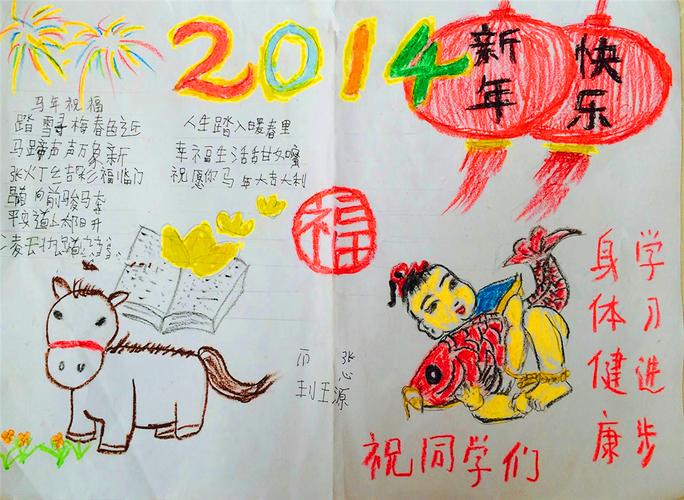 2014
新年
快乐
马年祝福
踏雪寻梅春近
马蹄声声万象新
张灯结彩福临门
向前骏马奔
平安道上太阳升
凌云壮踏
人生踏入暖春里
幸福生活甜如蜜
祝愿你马年大吉利
福
张心源
祝同学们
学习进步
身体健康